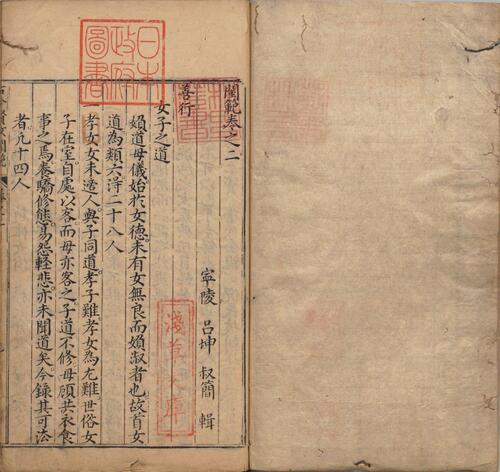 閨範卷之二
寧陵 呂坤 叔簡 輯
善行
女子之道
婦道母儀始於女德未有女無良而婦淑者也故首女
道為類六淂二十八人
一孝女女未適人與子同道孝子難孝女為尤難世俗女
子在室自處以客而母亦客之子道不修母顧共衣食
事之焉養驕修態易怨輕悲亦未聞道矣今錄其可法
者凡十四人
日本
政府
圖書
淺草文庫